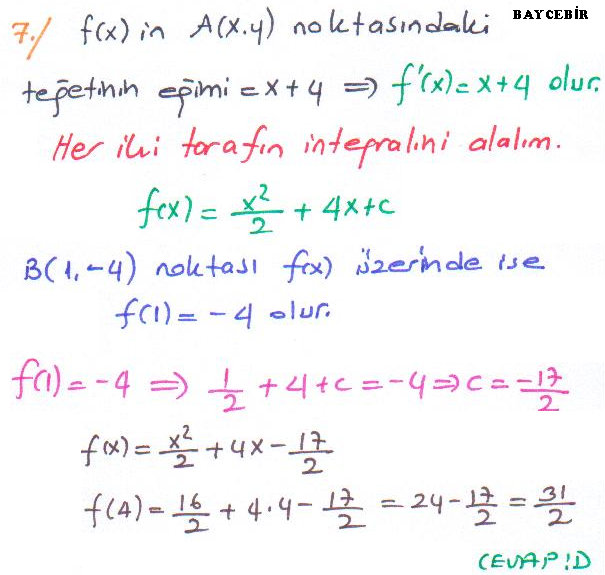 BAYCEBİR
7./ f(x) in A(x.y) noktasındaki
teğetinin eğimi = x + 4 ⇒ f'(x) = x+4 olur.
Her iki tarafın integralini alalım.
f(x) = x²/2 + 4x+c
B(1,-4) noktası f(x) üzerinde ise
f(1) = -4 olur.
f(1) = -4 ⇒ 1/2 + 4+c = -4 ⇒ c = -17/2
f(x) = x²/2 + 4x - 17/2
f(4) = 16/2 + 4.4 - 17/2 = 24 - 17/2 = 31/2
CEVAP:D